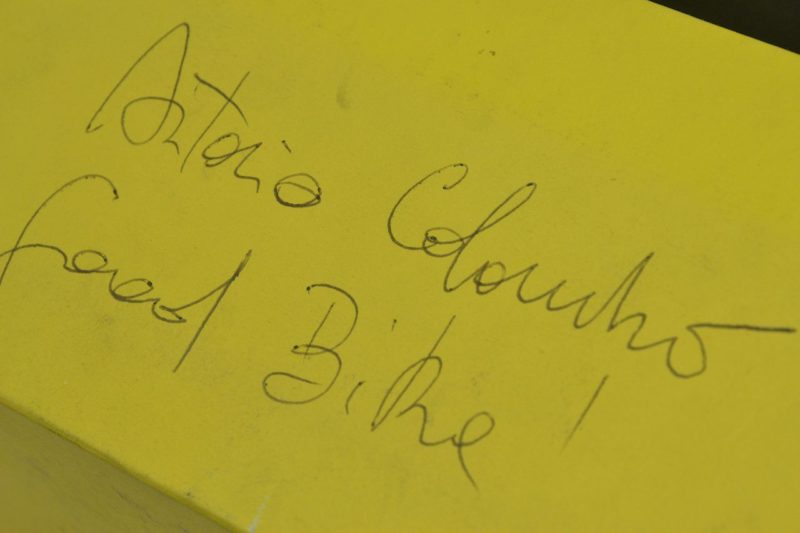 Antonio Colombo
Good Bike!